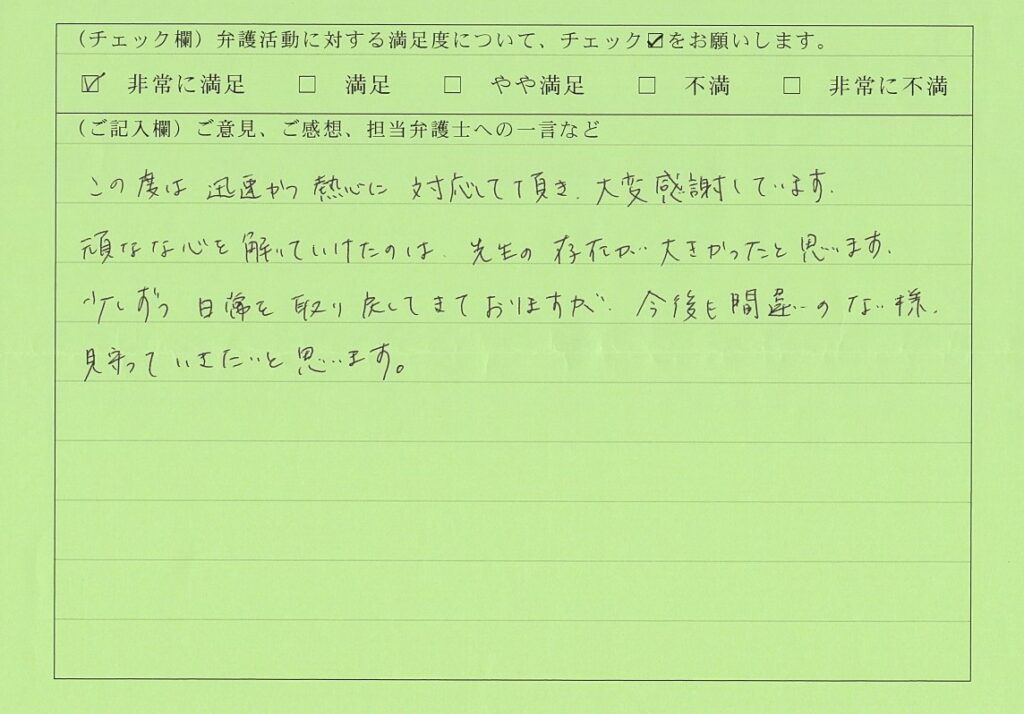 （チェック欄）弁護活動に対する満足度について、チェック☑をお願いします。
☑ 非常に満足 □ 満足 □ やや満足 □ 不満 □ 非常に不満
（ご記入欄）ご意見、ご感想、担当弁護士への一言など
この度は 迅速かつ熱心に 対応して頂き、大変感謝しています。
頑なな心を解いていけたのは、先生の存在が大きかったと思います。
少しずつ日常を取り戻してきておりますが、今後も間違いのない様、
見守っていきたいと思います。